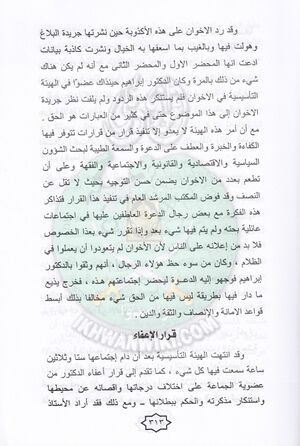 وقد رد الاخوان على هذه الأكذوبة حين نشرتها جريدة البلاغ
وهولت فيها وبالغيب بما اسعفها به الخيال ونشرت كاذبة بيانات
ادعت انها المحضر الأول والمحضر الثانى مع أنه لم يكن هناك
شىء من ذلك بالمرة وكان الدكتور إبراهيم حينذاك عضوا فى الهيئة
التأسيسية فى الاخوان فلم يستنكر هذه الردود ولم يلفت نظر جريدة
الاخوان إلى هذا الموضوع حتى فى كثير من العبارات هو الحق .
مع أن امر هذه الهيئة لا يعدو إلا تنفيذ قرار من قرارات تتوفر فيها
الكفاءة والخبرة والعطف على الدعوة والسمعة الطيبة لبحث الشؤون
السياسية والاقتصادية والقانونية والاجتماعية والفقهة وعلى أن
تطعم بعدد من الاخوان يضمن حسن التوجيه بحيث لا تقل عن
النصف وقد فوض المكتب المرشد العام فى تنفيذ هذا القرار فتذاكر
هذه الفكرة مع بعض رجال الدعوة العاطفين عليها فى اجتماعات
عائلية بحته ولم يتم فيها شىء بعد وإذا تقرر شىء بعدا الخصوص
فلا بد من إعلانه على الناس لأن الأخوان لم يتعودوا أن يعملوا فى
الظلام ، وكان من سوء حظ هؤلاء الرجال ، أنهم وثقوا بالدكتور
إبراهيم فوجهو إليه الدعوة ليحضر إجتماعتها هذه ، فخرج يذيع
ما دار فيها بطريقة ليس فيها من الحق شىء مخالفا بذلك أبسط
قواعد الامانة والإنصاف والثقة والدين ..
قرار الإعفاء
وقد انتهت الهيئة التأسيسية بعد أن دام إجتماعها ستا وثلاثين
ساعة سمعت فيها كل شىء ، كما تقدم إلى إقرار اعفاء الدكتور من
عضوية الجماعة على اختلاف درجاتها واقصائه عن محيطها
واستنكار مذكرته والحكم ببطلانها .. ومع ذلك فقد أراد الأستاذ
٣١٣
IKHWANWIKI.COM